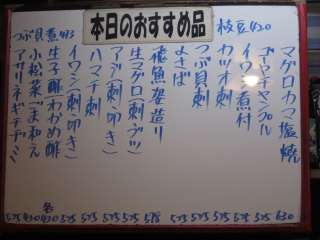 本日のおすすめ品
枝豆420
マグロカマ塩焼 630
ゴーヤチャンプル 525
イワシ煮付 525
カツオ刺 525
つぶ貝刺 525
飛魚姿造り
生マグロ刺(ブツ) 525
アジ(刺・叩き) 525
ハマチ刺 525
イワシ(刺・叩き) 525
生子酢 わかめ酢 各
小松菜ごま和え
アサリネギチヂミ 525
つぶ貝煮